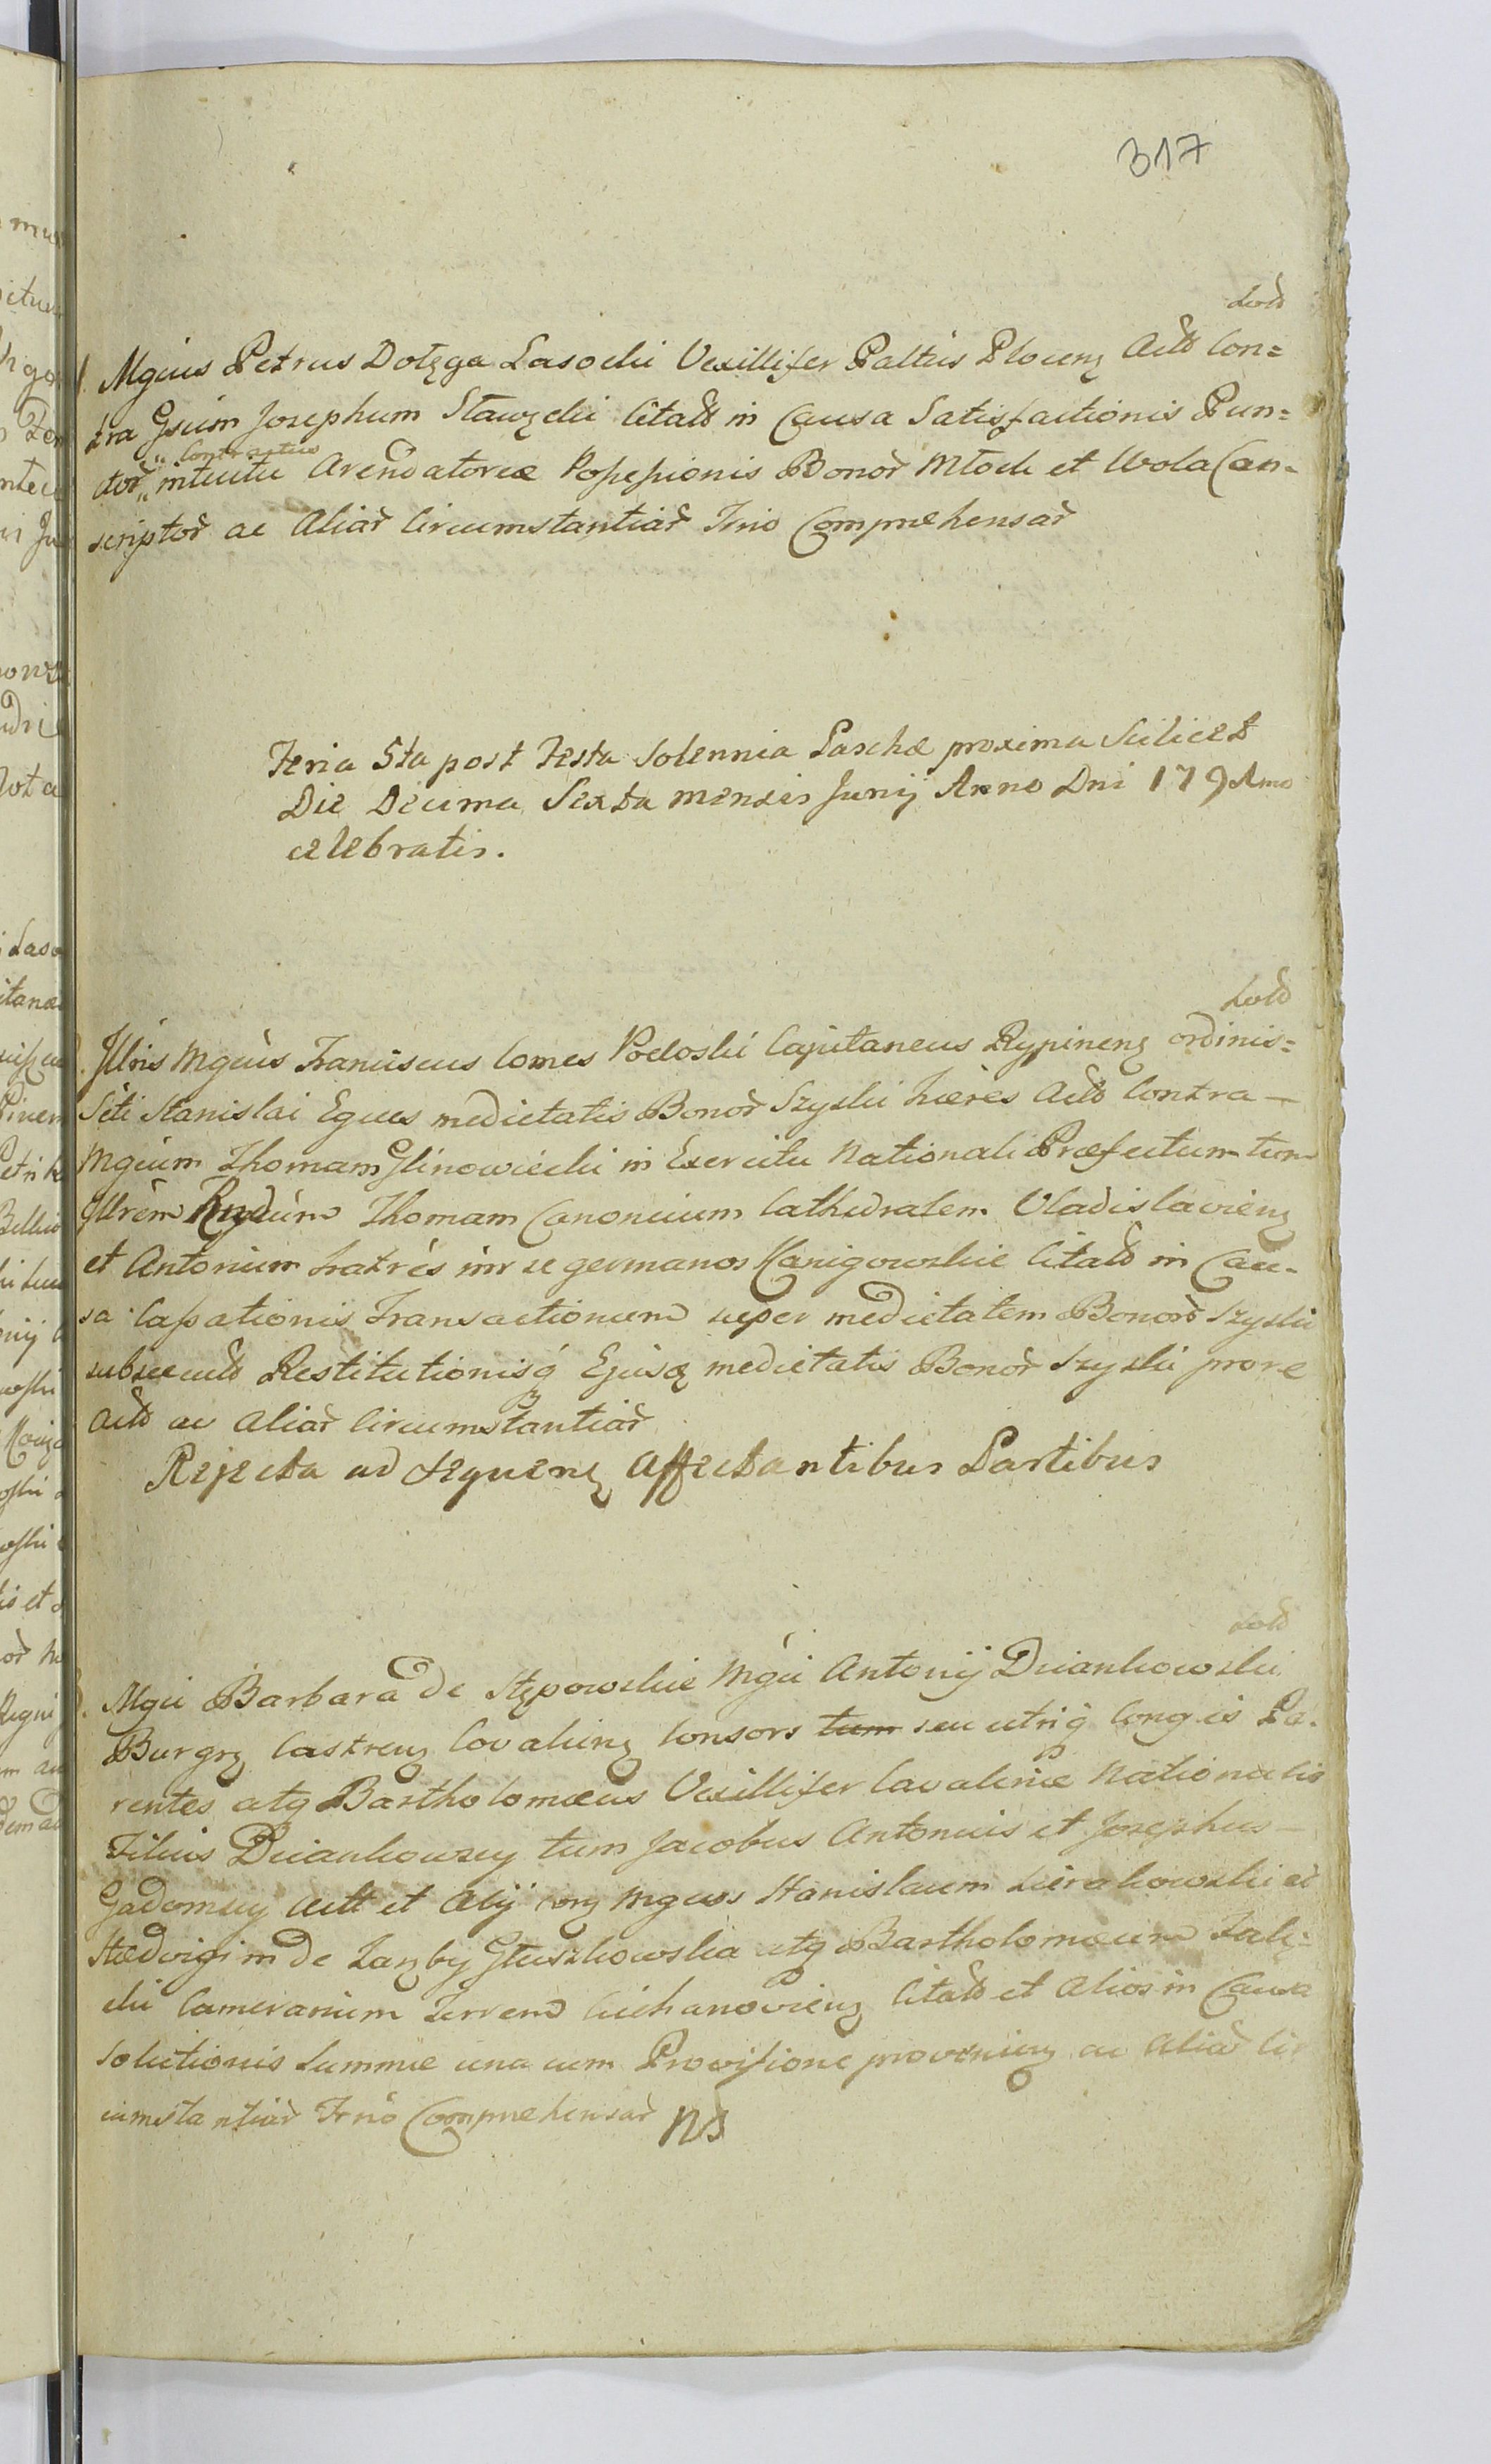 317
Mgcus Petrus Dołęga Lasocki Vexillifer Paltus Plocenz Actd Con=
tra Gsum Josephum Stawzcki Citatd in Causa Satisfactionis Pun=
ctor̃ „ Contractus „ intuitu Arendatoriæ Possessionis Bonor̃ Młock et Wola Con-
scriptor̃ ac Aliar̃ Circumstantiar̃ Trno Compræhensar̃
Feria 5ta post Festa Solennia Paschæ proxima Scilicet
Die Decima Sexta mensis Junij Anno Dni 179
celebratis.
Illris Mgcus Franciscus Comes Podoski Capitaneus Rypinenz ordinis=
Scti Stanislai Eques medietatis Bonor̃ Szyski hæres Actd Contra –
Mgcum Thomam Glinowiecki in Exercitu Nationali Præfectum tum
Illrem Rndum Thomam Canonicum Cathedralem Vladislavienz
et Antonium fratres inr se germanos Kanigowskie Citatd in Cau-
sa Cassationis Transactionum super medietatem Bonor̃ Szyski
subsecutd Restitutionisq̃ Ejusq medietatis Bonor̃ Szyski prore
Actd ac Aliar̃ Circumstantiar̃
Rejecta ad sequenz Affectantibus Partibus
Mgci Barbara de Stępowskie Mgci Antonij Dziankowski
Burgrz Castrenz Covalienz Consors tum seu utriq̃ Congis Pa-
rentes atq Bartholomæus Vexillifer Cavaleriæ Nationalis
Filius Dziankowscy tum Jacobus Antonius et Josephus –
Gadomscy Actt et Alij Mgcos Stanislaum Sierakowski et
Hædvigim de Zaręby Głuszkowska atq Bartholomæum Zalę=
cki Camerarium Terrend Ciechanovienz Citatd et Alios in Causa
Solutionis Summæ una cum Provisione provenienz ac Aliar̃ Cir
cumstantiar̃ Trno Comprehensar̃ NS